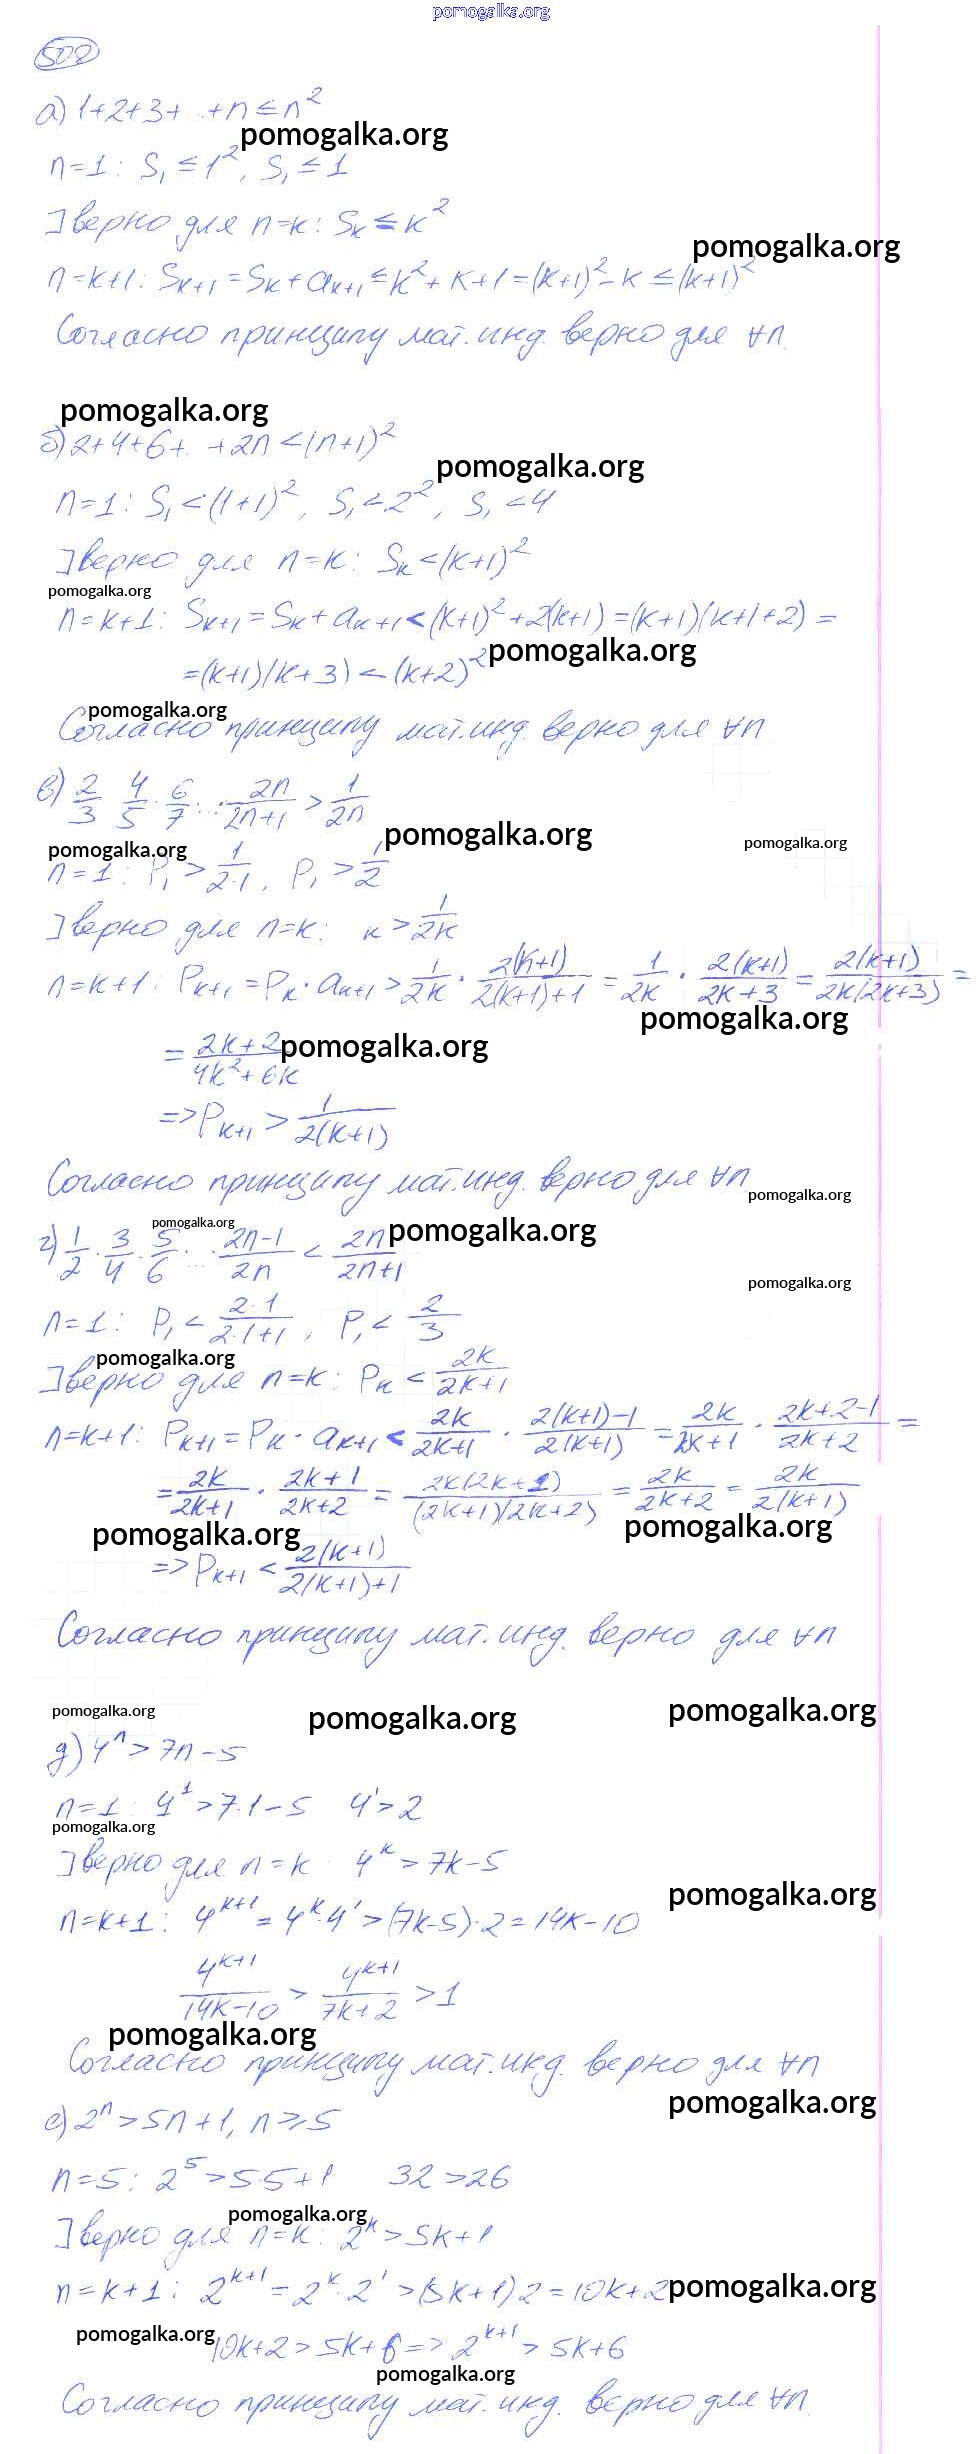 pomogalka.org
508
а) 1+2+3+...+n ≤ n²
pomogalka.org
n=1: S₁ ≤ 1², S₁ ≤ 1
] верно для n=k: Sₖ ≤ k²
pomogalka.org
n=k+1: Sₖ₊₁ = Sₖ + aₖ₊₁ ≤ k² + k+1 = (k+1)² - k ≤ (k+1)²
Согласно принципу мат. инд. верно для ∀n.
pomogalka.org
б) 2+4+6+...+2n < (n+1)²
pomogalka.org
n=1: S₁ < (1+1)², S₁ < 2², S₁ < 4
] верно для n=k: Sₖ < (k+1)²
pomogalka.org
n=k+1: Sₖ₊₁ = Sₖ + aₖ₊₁ < (k+1)² + 2(k+1) = (k+1)(k+1+2) =
pomogalka.org
= (k+1)(k+3) < (k+2)²
pomogalka.org
Согласно принципу мат. инд. верно для ∀n
в) 2/3 · 4/5 · 6/7 · ... · 2n/(2n+1) > 1/2n
pomogalka.org
pomogalka.org
pomogalka.org
n=1: P₁ > 1/(2·1), P₁ > 1/2
] верно для n=k: k > 1/2k
n=k+1: Pₖ₊₁ = Pₖ · aₖ₊₁ > 1/2k · 2(k+1)/(2(k+1)+1) = 1/2k · 2(k+1)/(2k+3) = 2(k+1)/(2k(2k+3)) =
pomogalka.org
= (2k+2)/(4k²+6k)
pomogalka.org
=> Pₖ₊₁ > 1/(2(k+1))
Согласно принципу мат. инд. верно для ∀n
pomogalka.org
pomogalka.org
pomogalka.org
г) 1/2 · 3/4 · 5/6 · ... · (2n-1)/2n < 2n/(2n+1)
pomogalka.org
n=1: P₁ < 2·1/(2·1+1), P₁ < 2/3
pomogalka.org
] верно для n=k: Pₖ < 2k/(2k+1)
n=k+1: Pₖ₊₁ = Pₖ · aₖ₊₁ < 2k/(2k+1) · (2(k+1)-1)/(2(k+1)) = 2k/(2k+1) · (2k+2-1)/(2k+2) =
= 2k/(2k+1) · (2k+1)/(2k+2) = 2k(2k+1)/((2k+1)(2k+2)) = 2k/(2k+2) = 2k/(2(k+1))
pomogalka.org
pomogalka.org
=> Pₖ₊₁ < 2(k+1)/(2(k+1)+1)
Согласно принципу мат. инд. верно для ∀n
pomogalka.org
pomogalka.org
pomogalka.org
д) 4ⁿ > 7n-5
n=1: 4¹ > 7·1-5 4¹ > 2
pomogalka.org
] верно для n=k 4ᵏ > 7k-5
pomogalka.org
n=k+1: 4ᵏ⁺¹ = 4ᵏ·4¹ > (7k-5)·2 = 14k-10
4ᵏ⁺¹/(14k-10) > 4ᵏ⁺¹/(7k+2) > 1
pomogalka.org
Согласно принципу мат. инд. верно для ∀n
pomogalka.org
е) 2ⁿ > 5n+1, n ≥ 5
n=5: 2⁵ > 5·5+1 32 > 26
pomogalka.org
] верно для n=k: 2ᵏ > 5k+1
n=k+1: 2ᵏ⁺¹ = 2ᵏ·2¹ > (5k+1)2 = 10k+2
pomogalka.org
pomogalka.org
10k+2 > 5k+6 => 2ᵏ⁺¹ > 5k+6
pomogalka.org
Согласно принципу мат. инд. верно для ∀n.